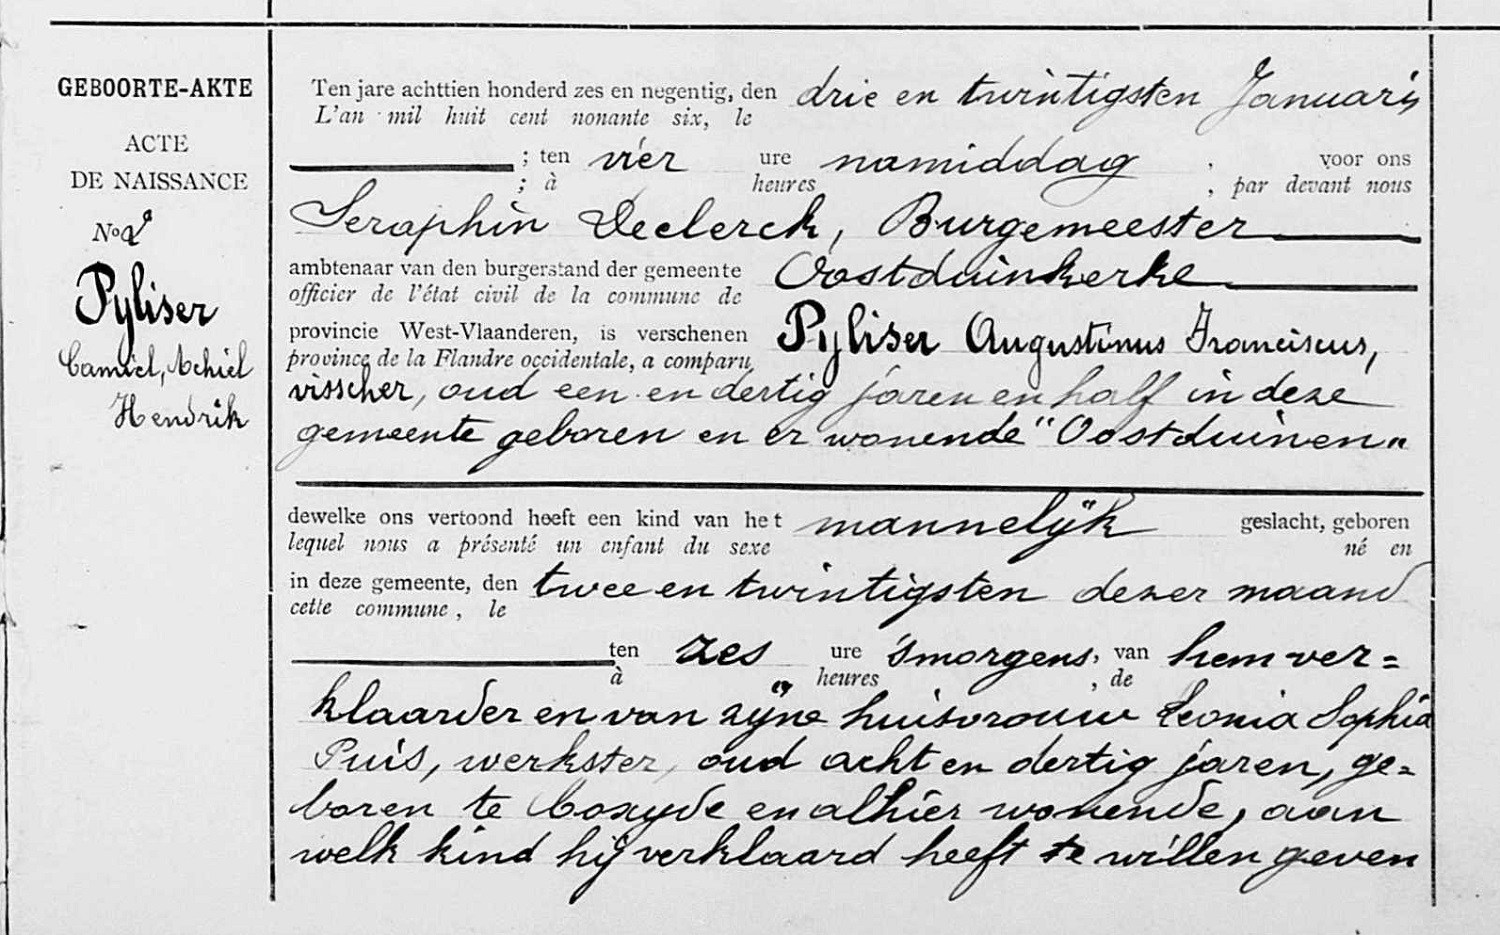 GEBOORTE-AKTE
ACTE
DE NAISSANCE
No 2
Pyliser
Camiel, Achiel
Hendrik
Ten jare achttien honderd zes en negentig, den drie en twintigsten Januarij
L'an mil huit cent nonante six, le
; ten vier ure namiddag , voor ons
; à heures , par devant nous
Seraphin Declerck, Burgemeester
ambtenaar van den burgerstand der gemeente Oostduinkerke
officier de l'état civil de la commune de
provincie West-Vlaanderen, is verschenen Pyliser Augustinus Franciscus,
province de la Flandre occidentale, a comparu
visscher, oud een en dertig jaren en half in deze
gemeente geboren en er wonende "Oostduinen"
dewelke ons vertoond heeft een kind van het mannelijk geslacht, geboren
lequel nous a présenté un enfant du sexe né en
in deze gemeente, den twee en twintigsten dezer maand
cette commune, le
ten zes ure 'smorgens, van hem ver=
à heures , de
klaarder en van zijne huisvrouw Leonia Sophia
Puis, werkster, oud acht en dertig jaren, ge=
boren te Coxyde en alhier wonende, aan
welk kind hij verklaard heeft te willen geven